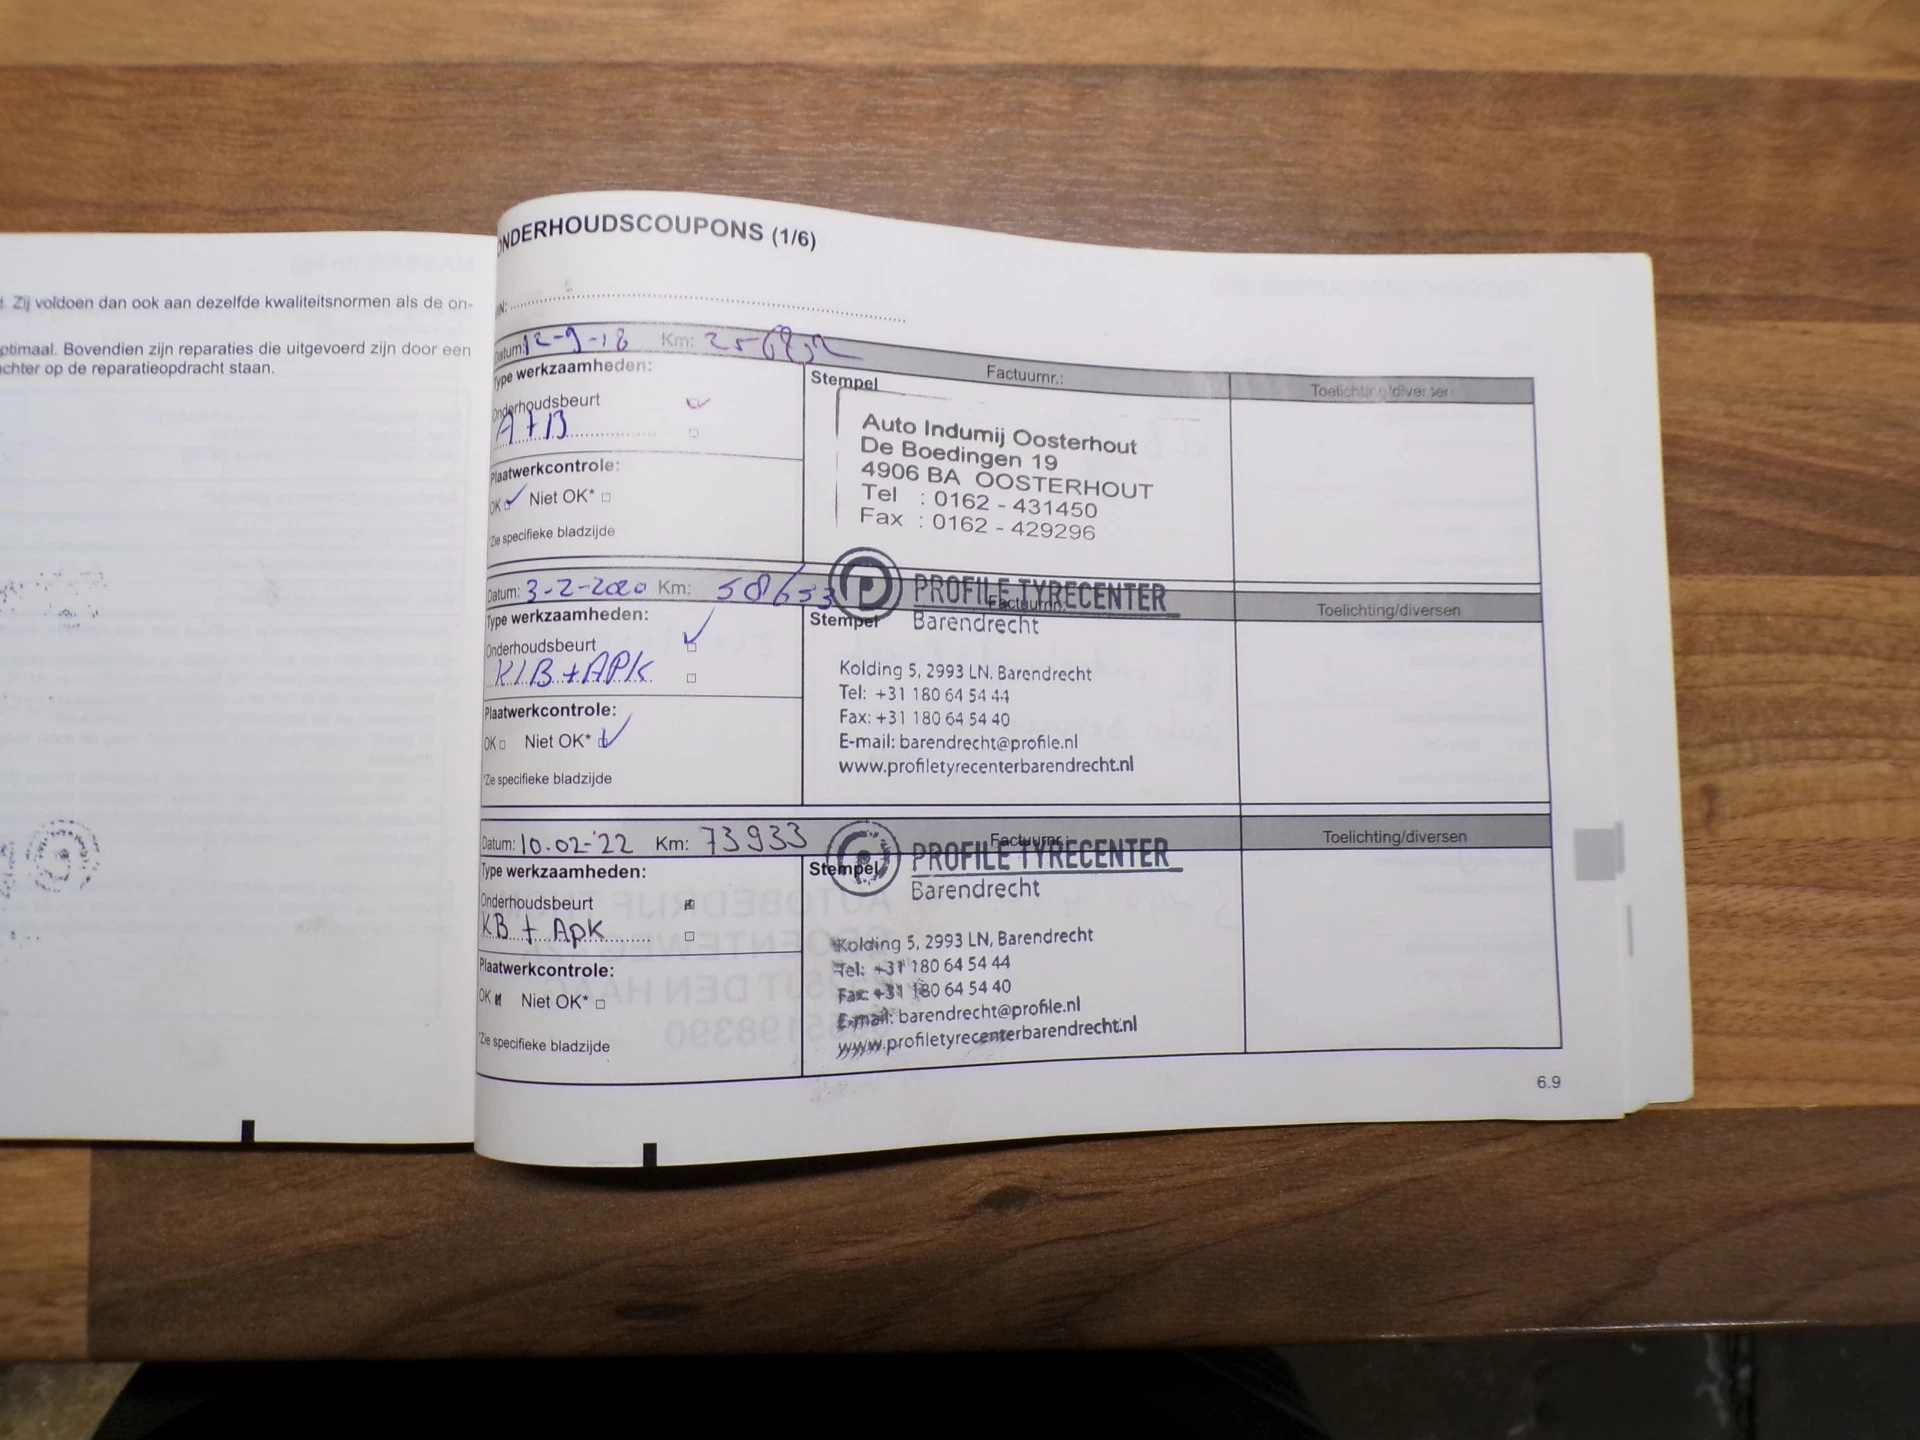 d. Zij voldoen dan ook aan dezelfde kwaliteitsnormen als de on-
optimaal. Bovendien zijn reparaties die uitgevoerd zijn door een
achter op de reparatieopdracht staan.
ONDERHOUDSCOUPONS (1/6)
Datum: 12-9-18 Km: Factuurnr.: Toelichting/diversen
Type werkzaamheden:
Stempel
Onderhoudsbeurt
A+B
Plaatwerkcontrole:
OK Niet OK*
*Zie specifieke bladzijde
Auto Indumij Oosterhout
De Boedingen 19
4906 BA OOSTERHOUT
Tel : 0162 - 431450
Fax : 0162 - 429296
Datum: 3-2-2020 Km: 58653 Factuurnr.: Toelichting/diversen
Type werkzaamheden:
Stempel
Onderhoudsbeurt
KLB + APK
Plaatwerkcontrole:
OK Niet OK*
*Zie specifieke bladzijde
PROFILE TYRECENTER
Barendrecht
Kolding 5, 2993 LN, Barendrecht
Tel: +31 180 64 54 44
Fax: +31 180 64 54 40
E-mail: barendrecht@profile.nl
www.profiletyrecenterbarendrecht.nl
Datum: 10.02-'22 Km: 73933 Factuurnr.: Toelichting/diversen
Type werkzaamheden:
Stempel
Onderhoudsbeurt
KB + Apk
Plaatwerkcontrole:
OK Niet OK*
*Zie specifieke bladzijde
PROFILE TYRECENTER
Barendrecht
Kolding 5, 2993 LN, Barendrecht
Tel: +31 180 64 54 44
Fax: +31 180 64 54 40
E-mail: barendrecht@profile.nl
www.profiletyrecenterbarendrecht.nl
6.9